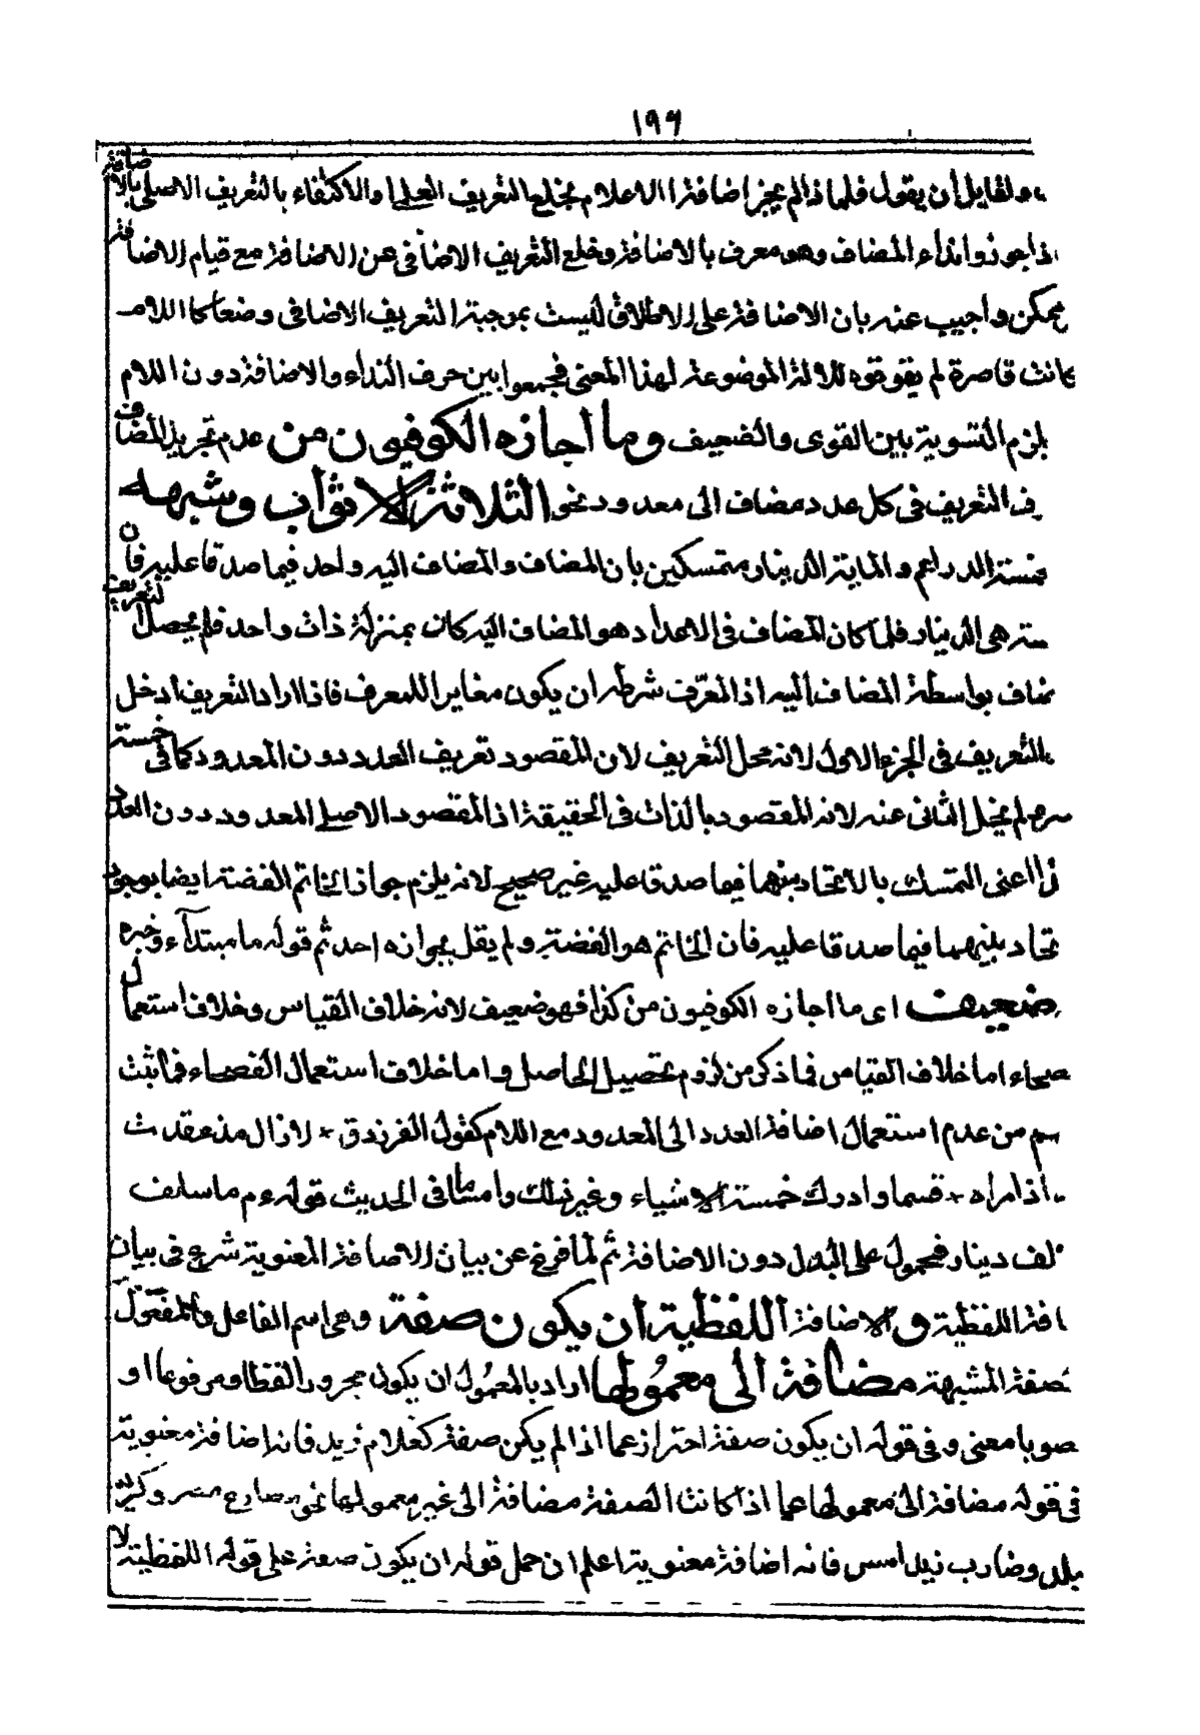 ١٩٦
ولقايل أن يقول فلما ذا لم يجز اضافة الاعلام بخلع التعريف العلمى والاكتفاء بالتعريف الاصلى بالاضافة
اذا جوزوا نداء المضاف وهو معرف بالاضافة وخلع التعريف الاضافى عن الاضافة مع قيام الاضافة
يمكن واجيب عنه بان الاضافة على الاطلاق ليست بموجبة التعريف الاضافى وضعا كما اللام
كانت قاصرة لم يقو قوة للآلة الموضوعة لهذا المعنى فجمعوا بين حرف النداء والاضافة دون اللام
يلزم التسوية بين القوى والضعيف وما أجازه الكوفيون من عدم تجريد المضاف
فى التعريف فى كل عدد مضاف الى معدود نحو الثلاثة الاثواب وشبهه
خمسة الدراهم والماية الدينار متمسكين بان المضاف والمضاف اليه واحد فيما صدقا عليه فان
هى الدينار فلما كان المضاف فى الاعداد هو المضاف اليه كان بمنزلة ذات واحد فلم يحصل التعريف
ضاف بواسطة المضاف اليه اذ المعرّف شرطه ان يكون مغايرا للمعرف فاذا اراد التعريف ادخل
التعريف فى الجزء الاول لانه محل التعريف لان المقصود تعريف العدد دون المعدود كما فى خمسة
لم يخل الثانى عنه لانه المقصود بالذات فى الحقيقة اذ المقصود الاصلى المعدود دون العدد
اعنى التمسك بالاتحاد بينهما فيما صدقا عليه غير صحيح لانه يلزم جواز الخاتم الفضة ايضا بوجود
تحاد بينهما فيما صدقا عليه فان الخاتم هو الفضة ولم يقل بجوازه احد ثم قوله ما مبتدأ وخبره
ضعيف اى ما اجازه الكوفيون من كذا فهو ضعيف لانه خلاف القياس وخلاف استعمال
صحاء اما خلاف القياس فما ذكر من لزوم تحصيل الحاصل واما خلاف استعمال الفصحاء فما ثبت
من عدم استعمال اضافة العدد الى المعدود مع اللام كقول الفرزدق * لا زال مذ عقدت
* فسما وادرك خمسة الاشياء وغير ذلك واما ما فى الحديث قوله عم ما سلف
لف دينار فمحمول على البدل دون الاضافة ثم لما فرغ عن بيان الاضافة المعنوية شرع فى بيان
افة اللفظية و الاضافة اللفظية ان يكون صفة وهى اسم الفاعل والمفعول
صفة المشبهة مضافة الى معمولها اراد بالمعمول ان يكون مجرورا لفظا ومرفوعا او
صوبا معنى وفى قوله ان يكون صفة احتراز عما اذا لم يكن صفة كغلام زيد فانه اضافة معنوية
فى قوله مضافة الى معمولها عما اذا كانت الصفة مضافة الى غير معمولها نحو مصارع مصر وكريم
بلد وضارب زيد امس فانه اضافة معنوية اعلم ان حمل قوله ان يكون صفة على قوله اللفظية لا